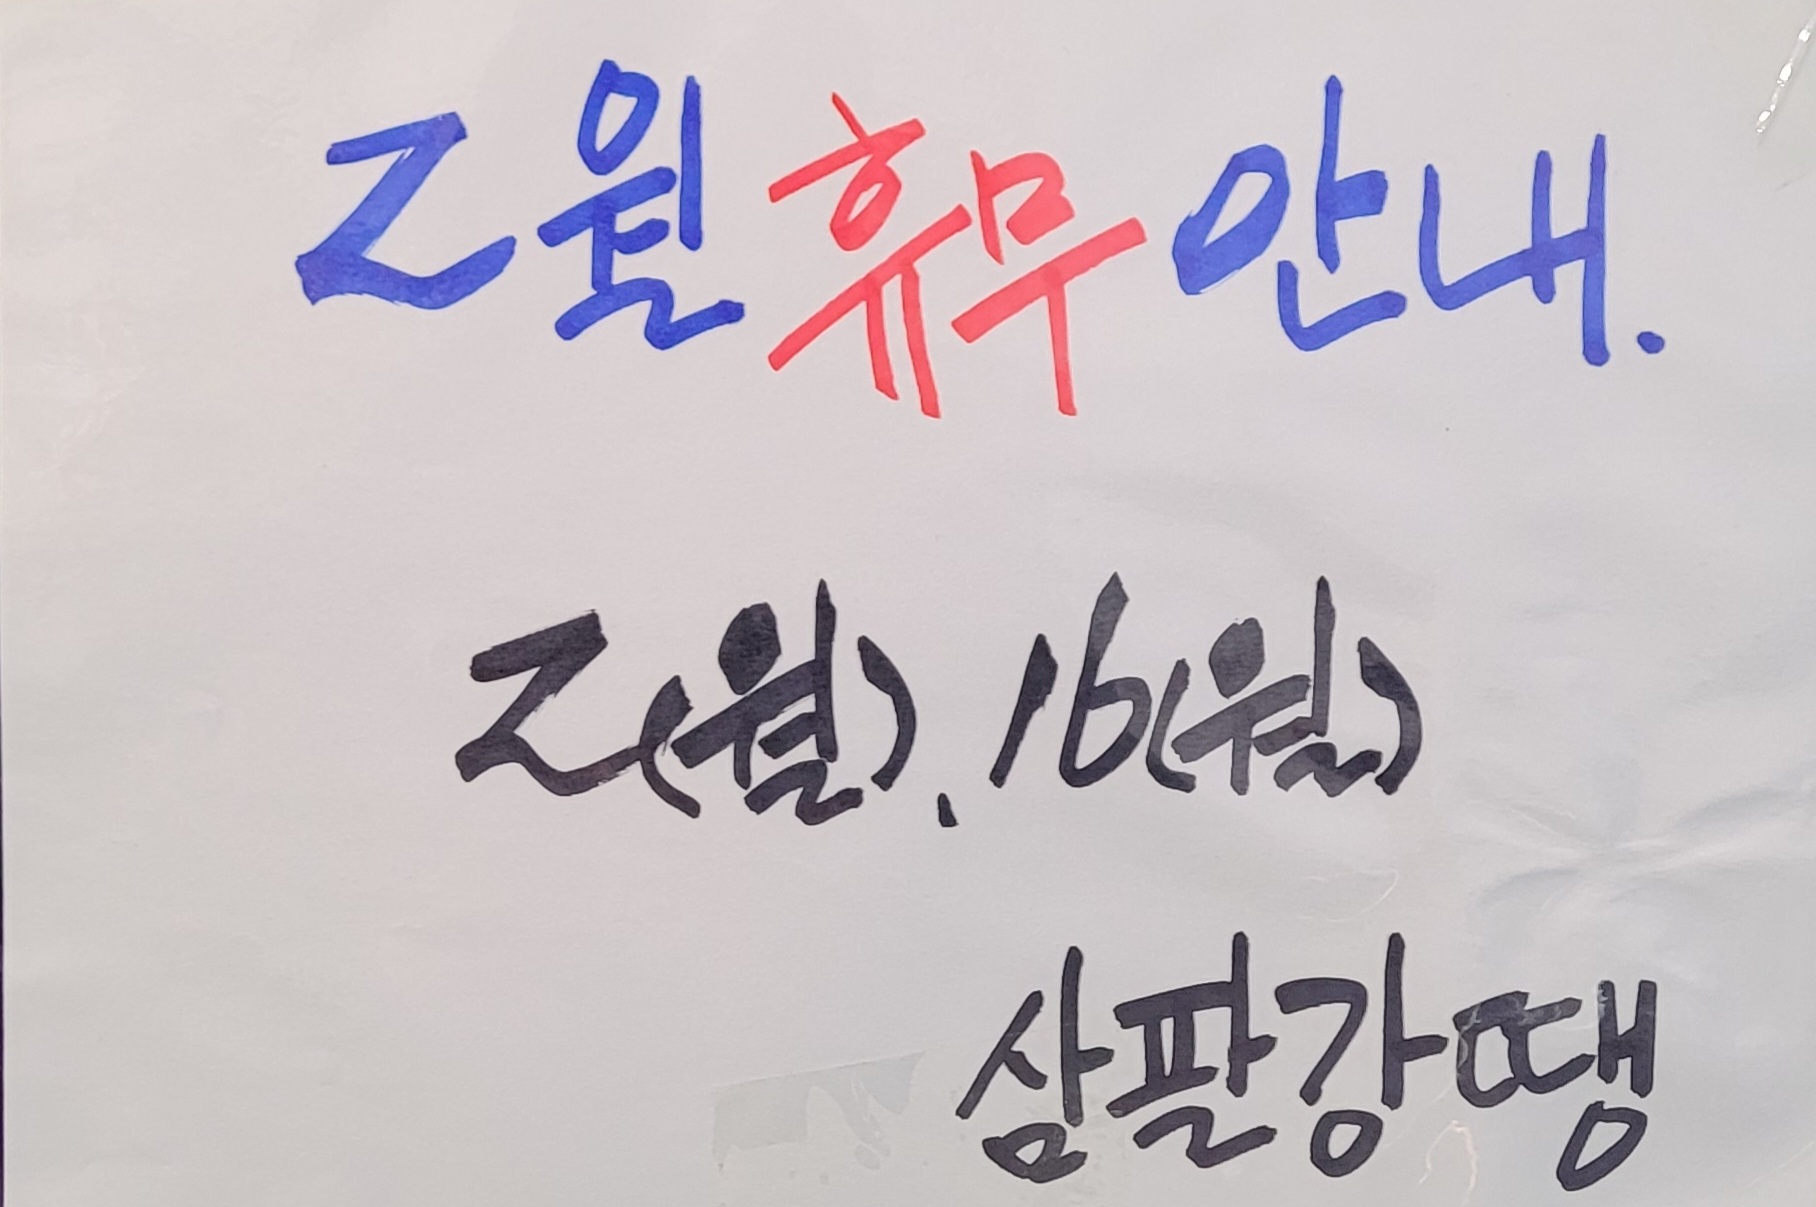 2월 휴무 안내.
2(월), 16(월)
삼팔강땡